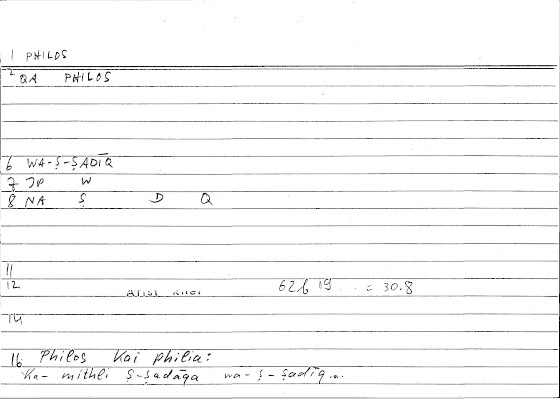 1 PHILOS
2 QA PHILOS
6 WA-Ṣ-ṢADĪQ
7 JP W
8 NA Ṣ D Q
11
12 62b 19 . . = 30.8
14
16 Philos kai philia:
Ka- mithli Ṣ-ṣadāqa wa-ṣ-ṣadīq...